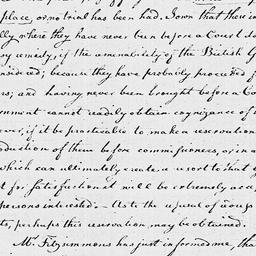 place, or no trial has been had. I own that there is
lly where they have never been before a Court d
ny remedy, if the amenability of the British G
onsidered; because they have probably proceeded f
rs; and having never been brought before a Co
rnment cannot readily obtain cognizance of
ever, if it be practicable to make a reservation
oduction of them before commissioners, or in a
which can ultimately create a resort to that
t for satisfaction it will be extremely acc
persons interested. - As to the refusal of
ts, perhaps this reservation may be obtained.
Mr. Fitzsimmons has just informed me, tha